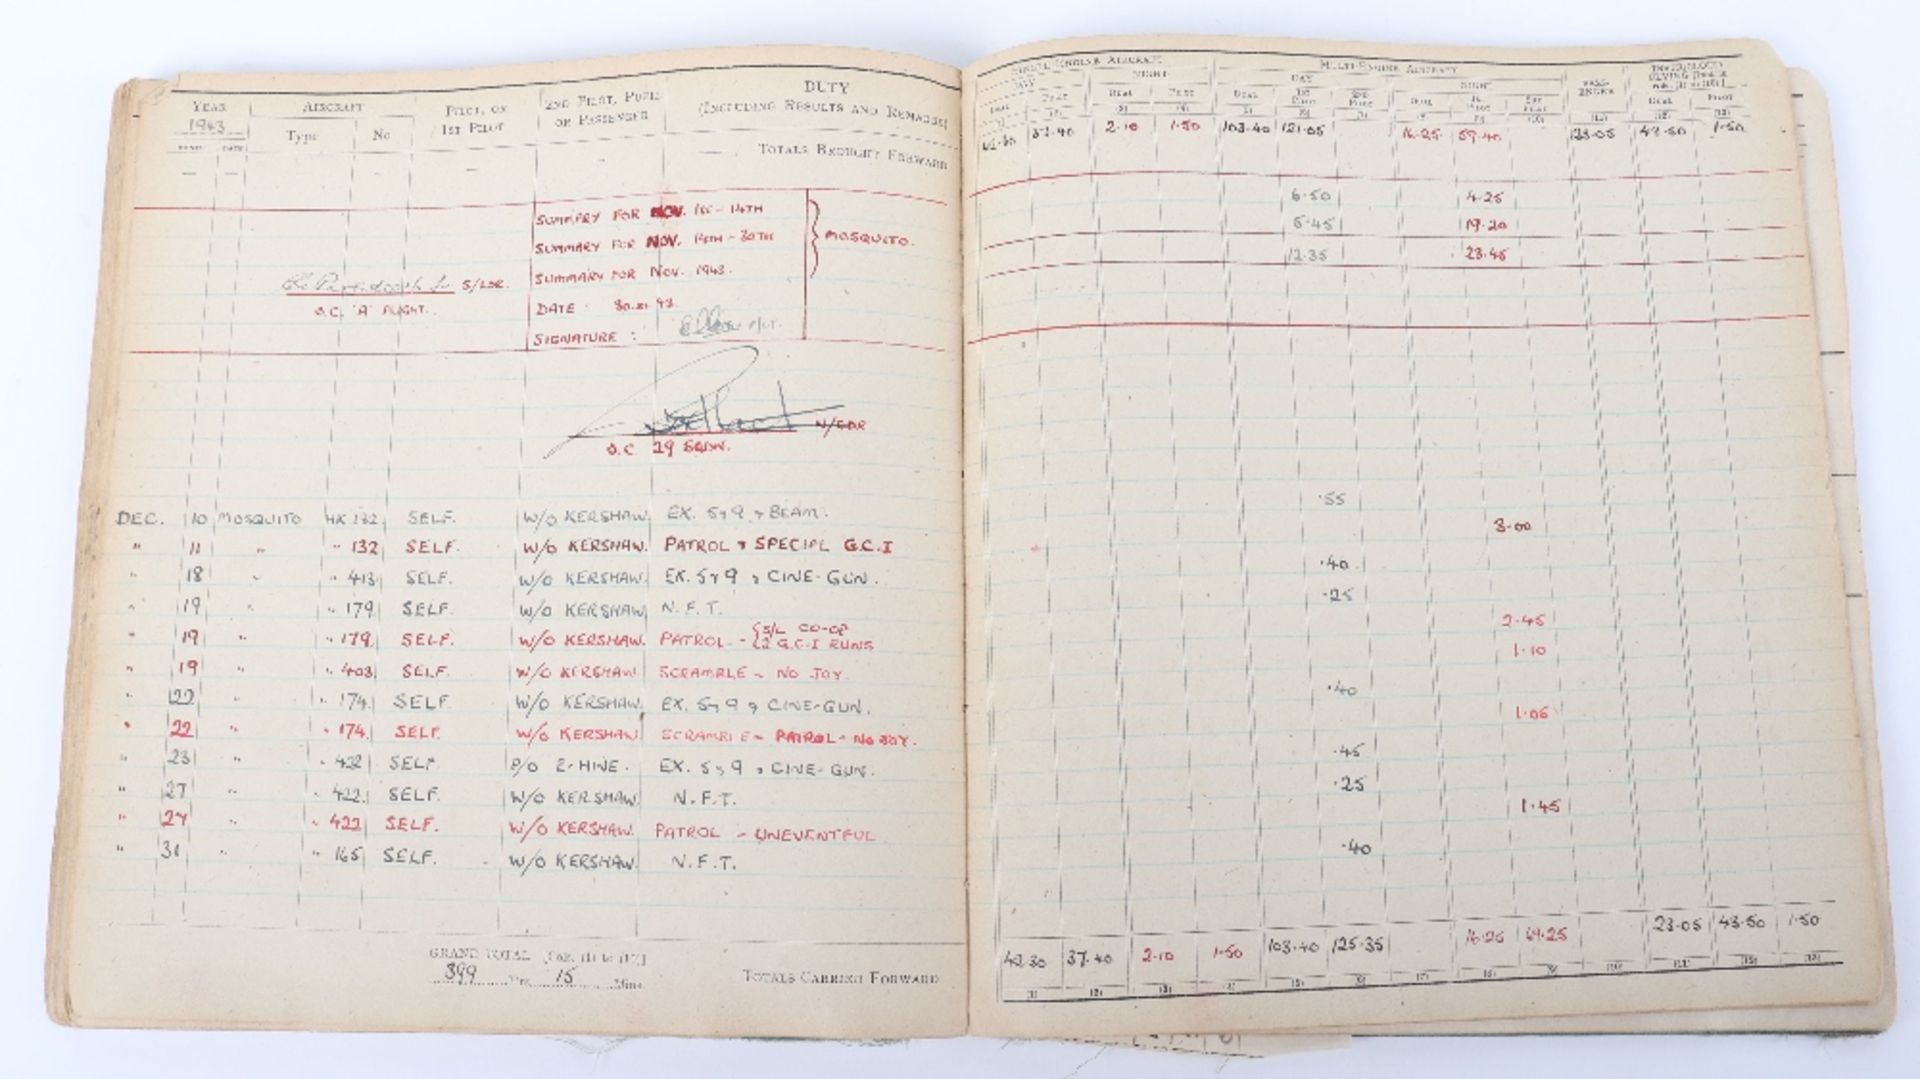 YEAR AIRCRAFT PILOT, OR 1ST PILOT 2ND PILOT, PUPIL OR PASSENGER DUTY (INCLUDING RESULTS AND REMARKS)
1943 Type No
MONTH DATE
TOTALS BROUGHT FORWARD
SUMMARY FOR NOV. 1st - 14TH
SUMMARY FOR NOV. 14TH - 30TH } MOSQUITO.
S/LDR. SUMMARY FOR NOV. 1943.
O.C. "A" FLIGHT. DATE : 30.XI.43.
SIGNATURE : F/LT.
W/CDR
O.C. 29 SQDN.
DEC. 10 MOSQUITO HK 132 SELF. W/O KERSHAW. EX. 5 & 9 & BEAM.
" 11 " " 132 SELF. W/O KERSHAW. PATROL & SPECIAL G.C.I
" 18 " " 413 SELF. W/O KERSHAW. EX. 5 & 9 & CINE-GUN.
" 19 " " 179 SELF. W/O KERSHAW N.F.T.
" 19 " " 179. SELF. W/O KERSHAW. PATROL - { S/L CO-OP 2 G.C.I RUNS
" 19 " " 403 SELF. W/O KERSHAW SCRAMBLE - NO JOY.
" 22 " " 174 SELF. W/O KERSHAW. EX. 5 & 9 & CINE-GUN.
" 22 " " 174. SELF. W/O KERSHAW SCRAMBLE - PATROL - NO JOY.
" 23 " " 422 SELF P/O E-HINE. EX. 5 & 9 & CINE-GUN.
" 27 " " 422. SELF. W/O KERSHAW. N.F.T.
" 27 " " 422 SELF. W/O KERSHAW. PATROL - UNEVENTFUL
" 31 " " 165 SELF. W/O KERSHAW. N.F.T.
GRAND TOTAL [Cols. (1) to (10)]
399 Hrs. 15 Mins.
TOTALS CARRIED FORWARD
SINGLE-ENGINE AIRCRAFT MULTI-ENGINE AIRCRAFT
DAY NIGHT DAY NIGHT PASSENGER
DUAL PILOT DUAL PILOT DUAL 1ST PILOT 2ND PILOT DUAL 1ST PILOT 2ND PILOT DUAL PILOT
37.40 2.10 1.50 103.40 121.05 16.25 59.40 23.05 43.50 1.50
6.50 4.25
5.45 19.20
12.35 23.45
.55
3.00
.40
.25
2.45
1.10
.40
1.05
.45
.25
1.45
.40
42.30 37.40 2.10 1.50 103.40 125.35 16.25 69.25 23.05 43.50 1.50
(1) (2) (3) (4) (5) (6) (7) (8) (9) (10) (11) (12) (13)